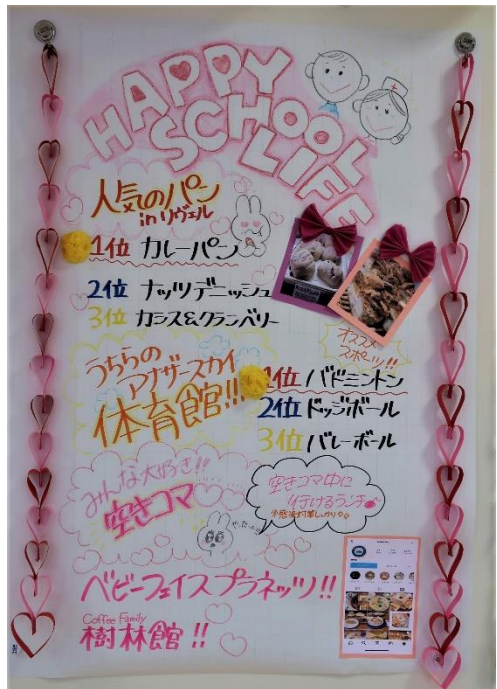 HAPPY
SCHOOL
LIFE
人気のパン
in リヴェル
1位 カレーパン
2位 ナッツデニッシュ
3位 カシス&クランベリー
うちらの
アナザースカイ
体育館!!!
オススメ
スポーツ!!
1位 バドミントン
2位 ドッジボール
3位 バレーボール
みんな大好き!!
空きコマ
空きコマ中に
行けるランチ
やったー
ベビーフェイスプラネッツ!!
Coffee Family
樹林館 !!